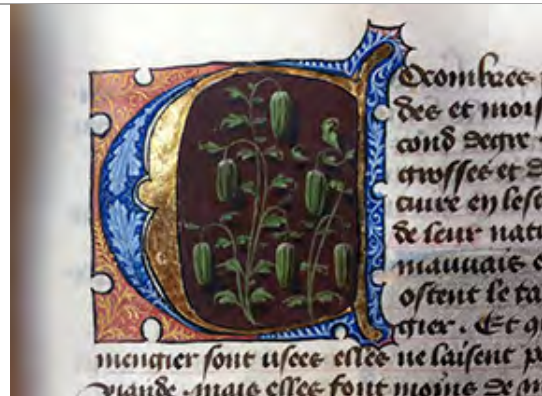 COcombres
des et
cond degre
grosses et
cuire en
de leur
mauuais
ostent le
gier. Et
mengier sont usees elles ne laisent
viande. mais elles font moins de